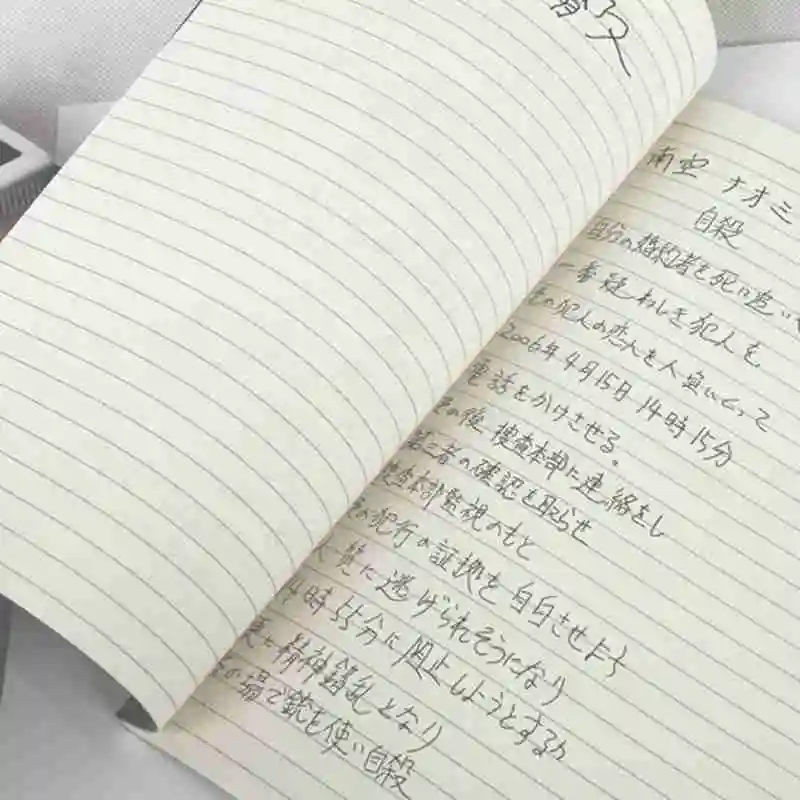 殺
南空 ナオミ
自殺
自分の婚約者を死に追い
一番疑わしき犯人を
その犯人の恋人を人質にとって
2006年4月15日14時15分
電話をかけさせる。
その後、捜査本部に連絡をし
第三者の確認を取らせ
捜査本部監視のもと
その犯行の証拠を自白させよう
一覧に逃げられそうになり
4時55分に阻止しようとするが
更に精神錯乱となり
その場で銃を使い自殺